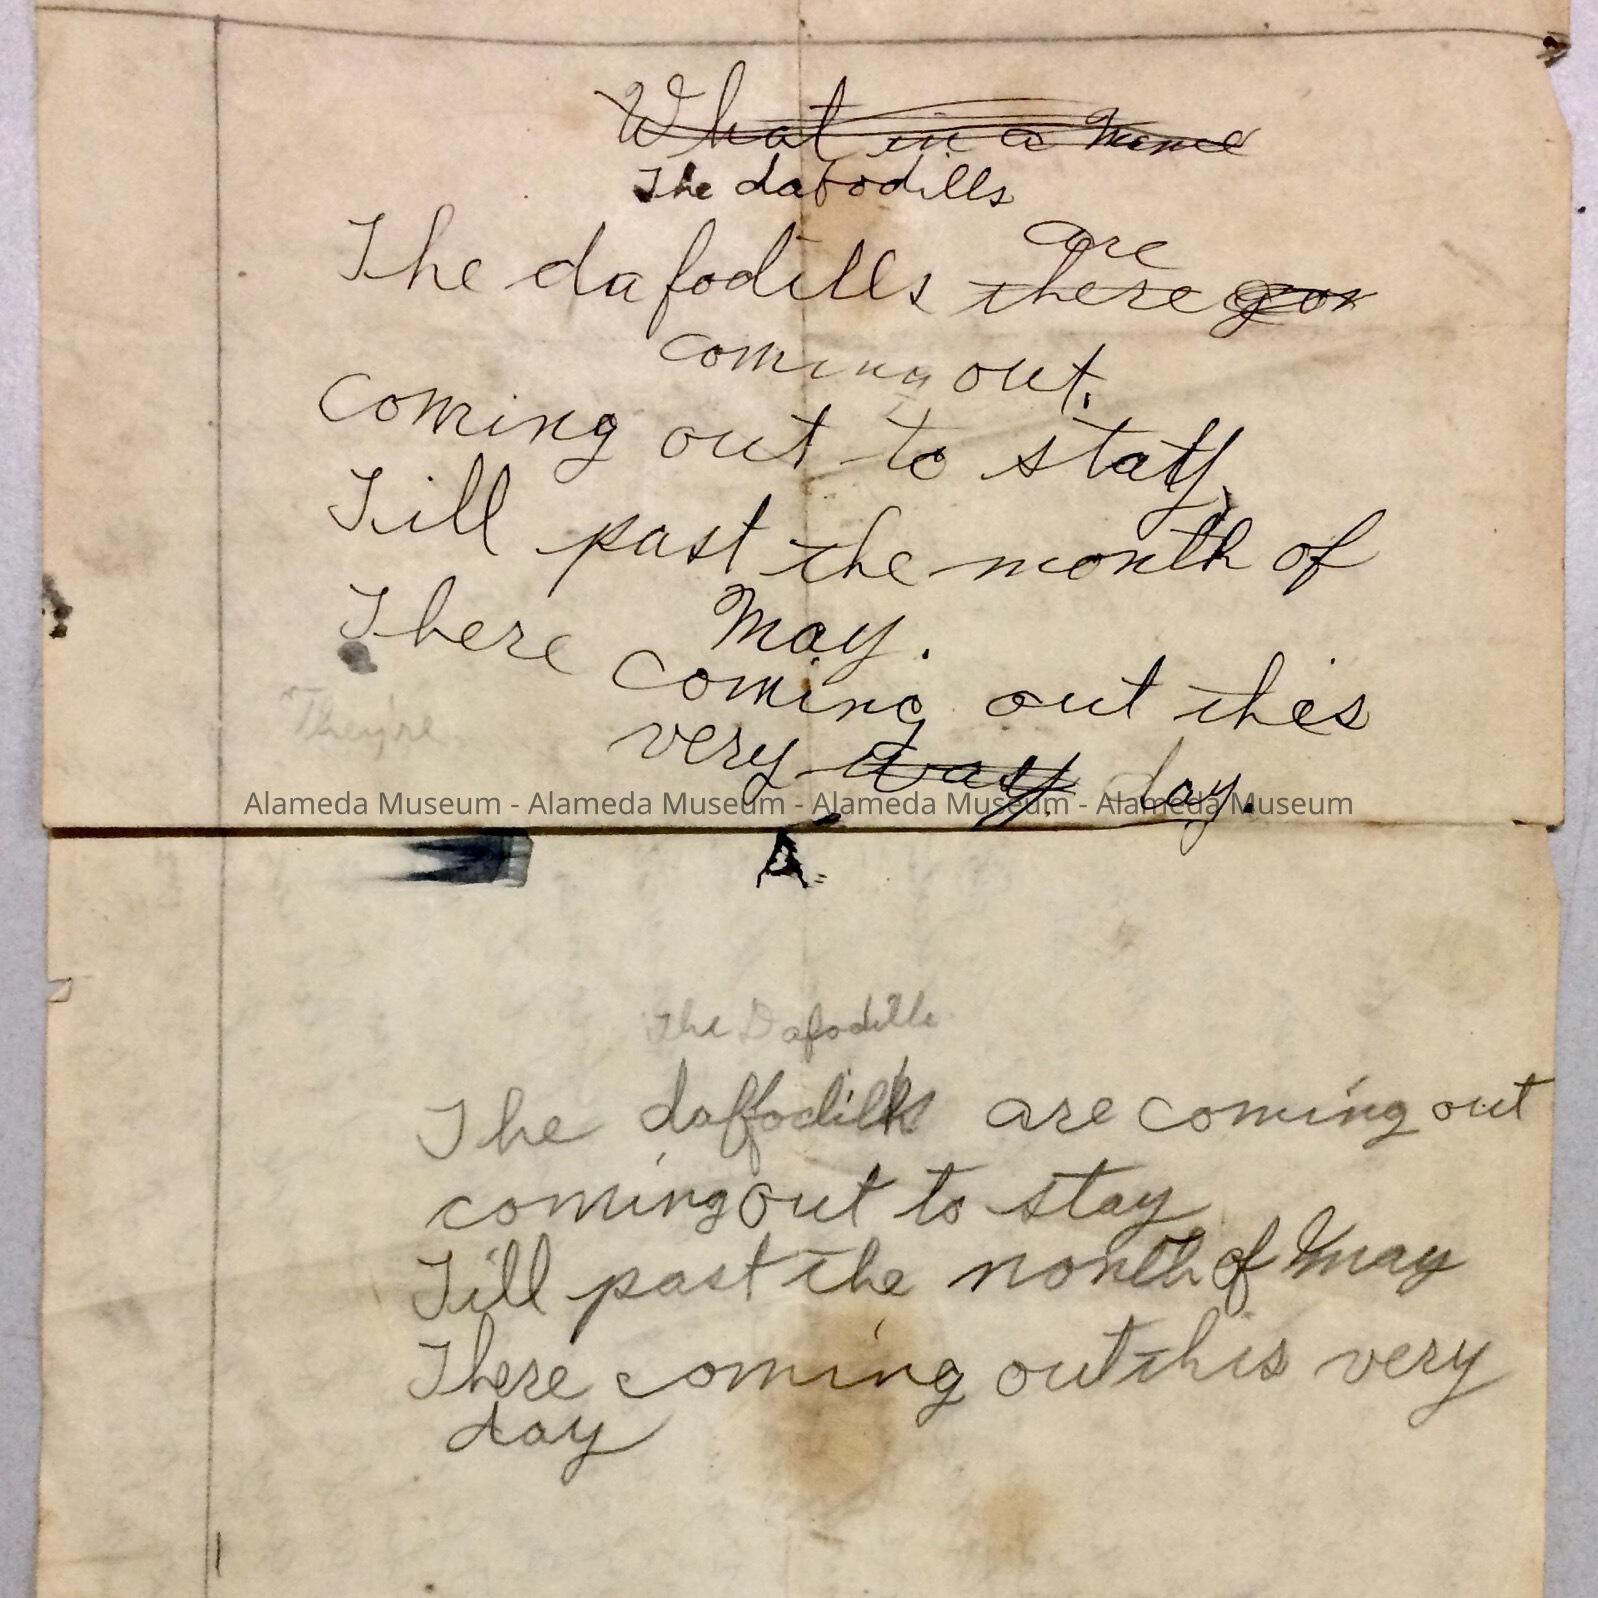 What in a
The dafodills
are
The dafodills there
coming out.
coming out to stay,
Till past the month of
May.
There coming out this
"They're
very day.
Alameda Museum - Alameda Museum - Alameda Museum - Alameda Museum
The Dafodills
The daffodills are coming out
coming out to stay
Till past the month of May
There coming out this very
day